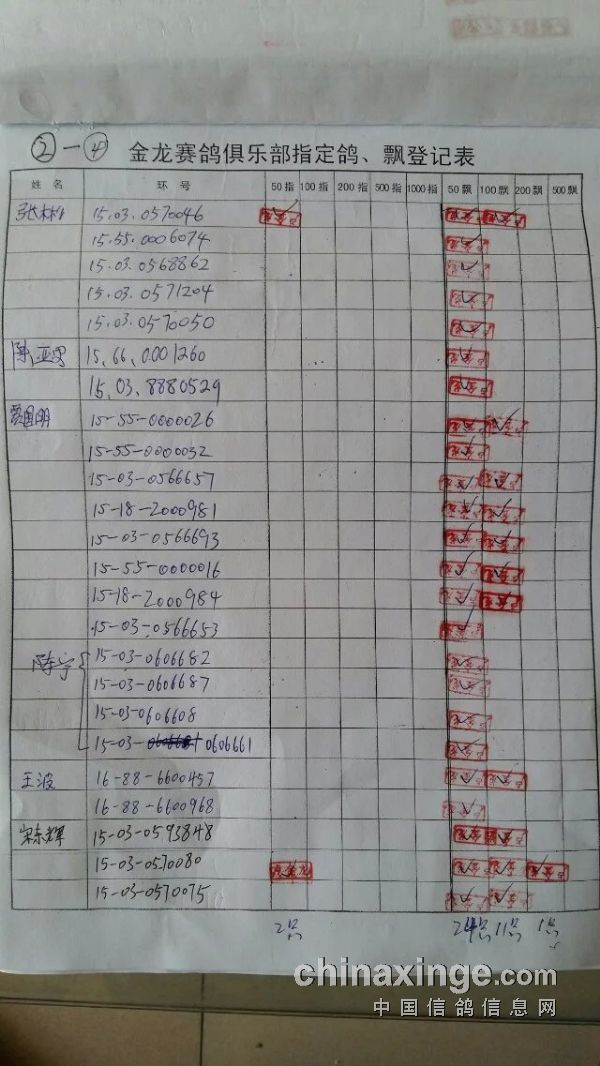 ②-④ 金龙赛鸽俱乐部指定鸽、飘登记表
姓 名 环 号 50指 100指 200指 500指 1000指 50飘 100飘 200飘 500飘
15.03.0570046
15.55.0006074
15.03.0568862
15.03.0571204
15.03.0570050
15.66.0001260
15.03.8880529
15-55-0000026
15-55-0000032
15-03-0566657
15-18-2000981
15-03-0566693
15-55-0000016
15-18-2000984
15-03-0566653
陈宁 15-03-0606682
15-03-0606687
15-03-0606608
15-03- 0606661
王波 16-88-6600457
16-88-6600968
宋东辉 15-03-0593848
15-03-0570080
15-03-0570075
2只 24只 11只 1只
chinaxinge.com
中国信鸽信息网